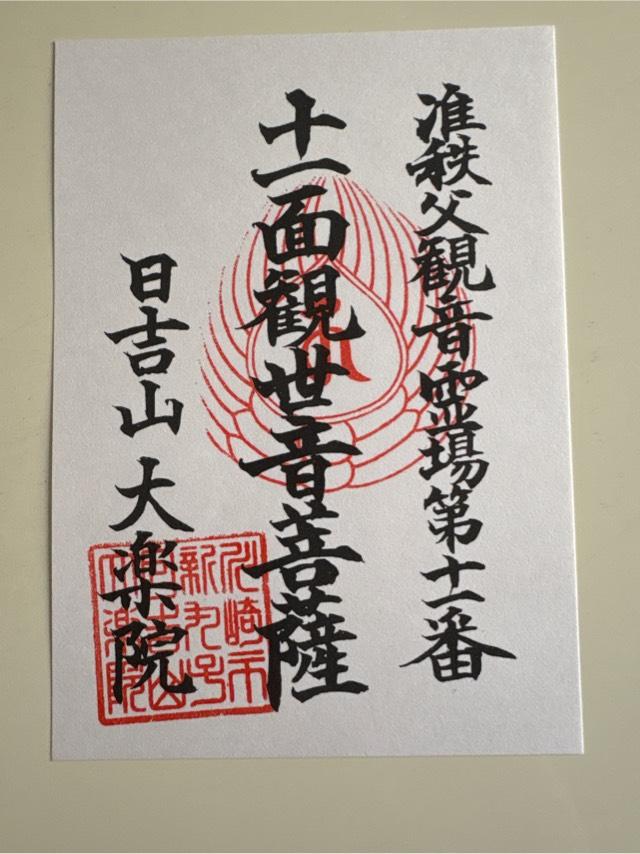 准秩父観音霊場第十一番
十一面観世音菩薩
日吉山 大楽院
川崎市
新丸子
日吉山
大楽院